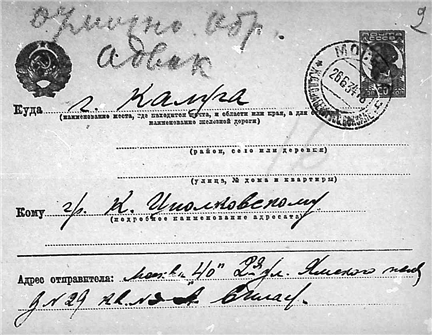 9
Адвок
МОСКВА
26.6.34
Куда г. Калуга
(наименование места, где находится почта, и области или края, а для
наименование железной дороги)
(район, село или деревня)
(улица, № дома и квартиры)
Кому гр. К. Циолковскому
(подробное наименование адресата)
Адрес отправителя: Москва "40" 2я ул. Ямского поля
д № 29 кв. №